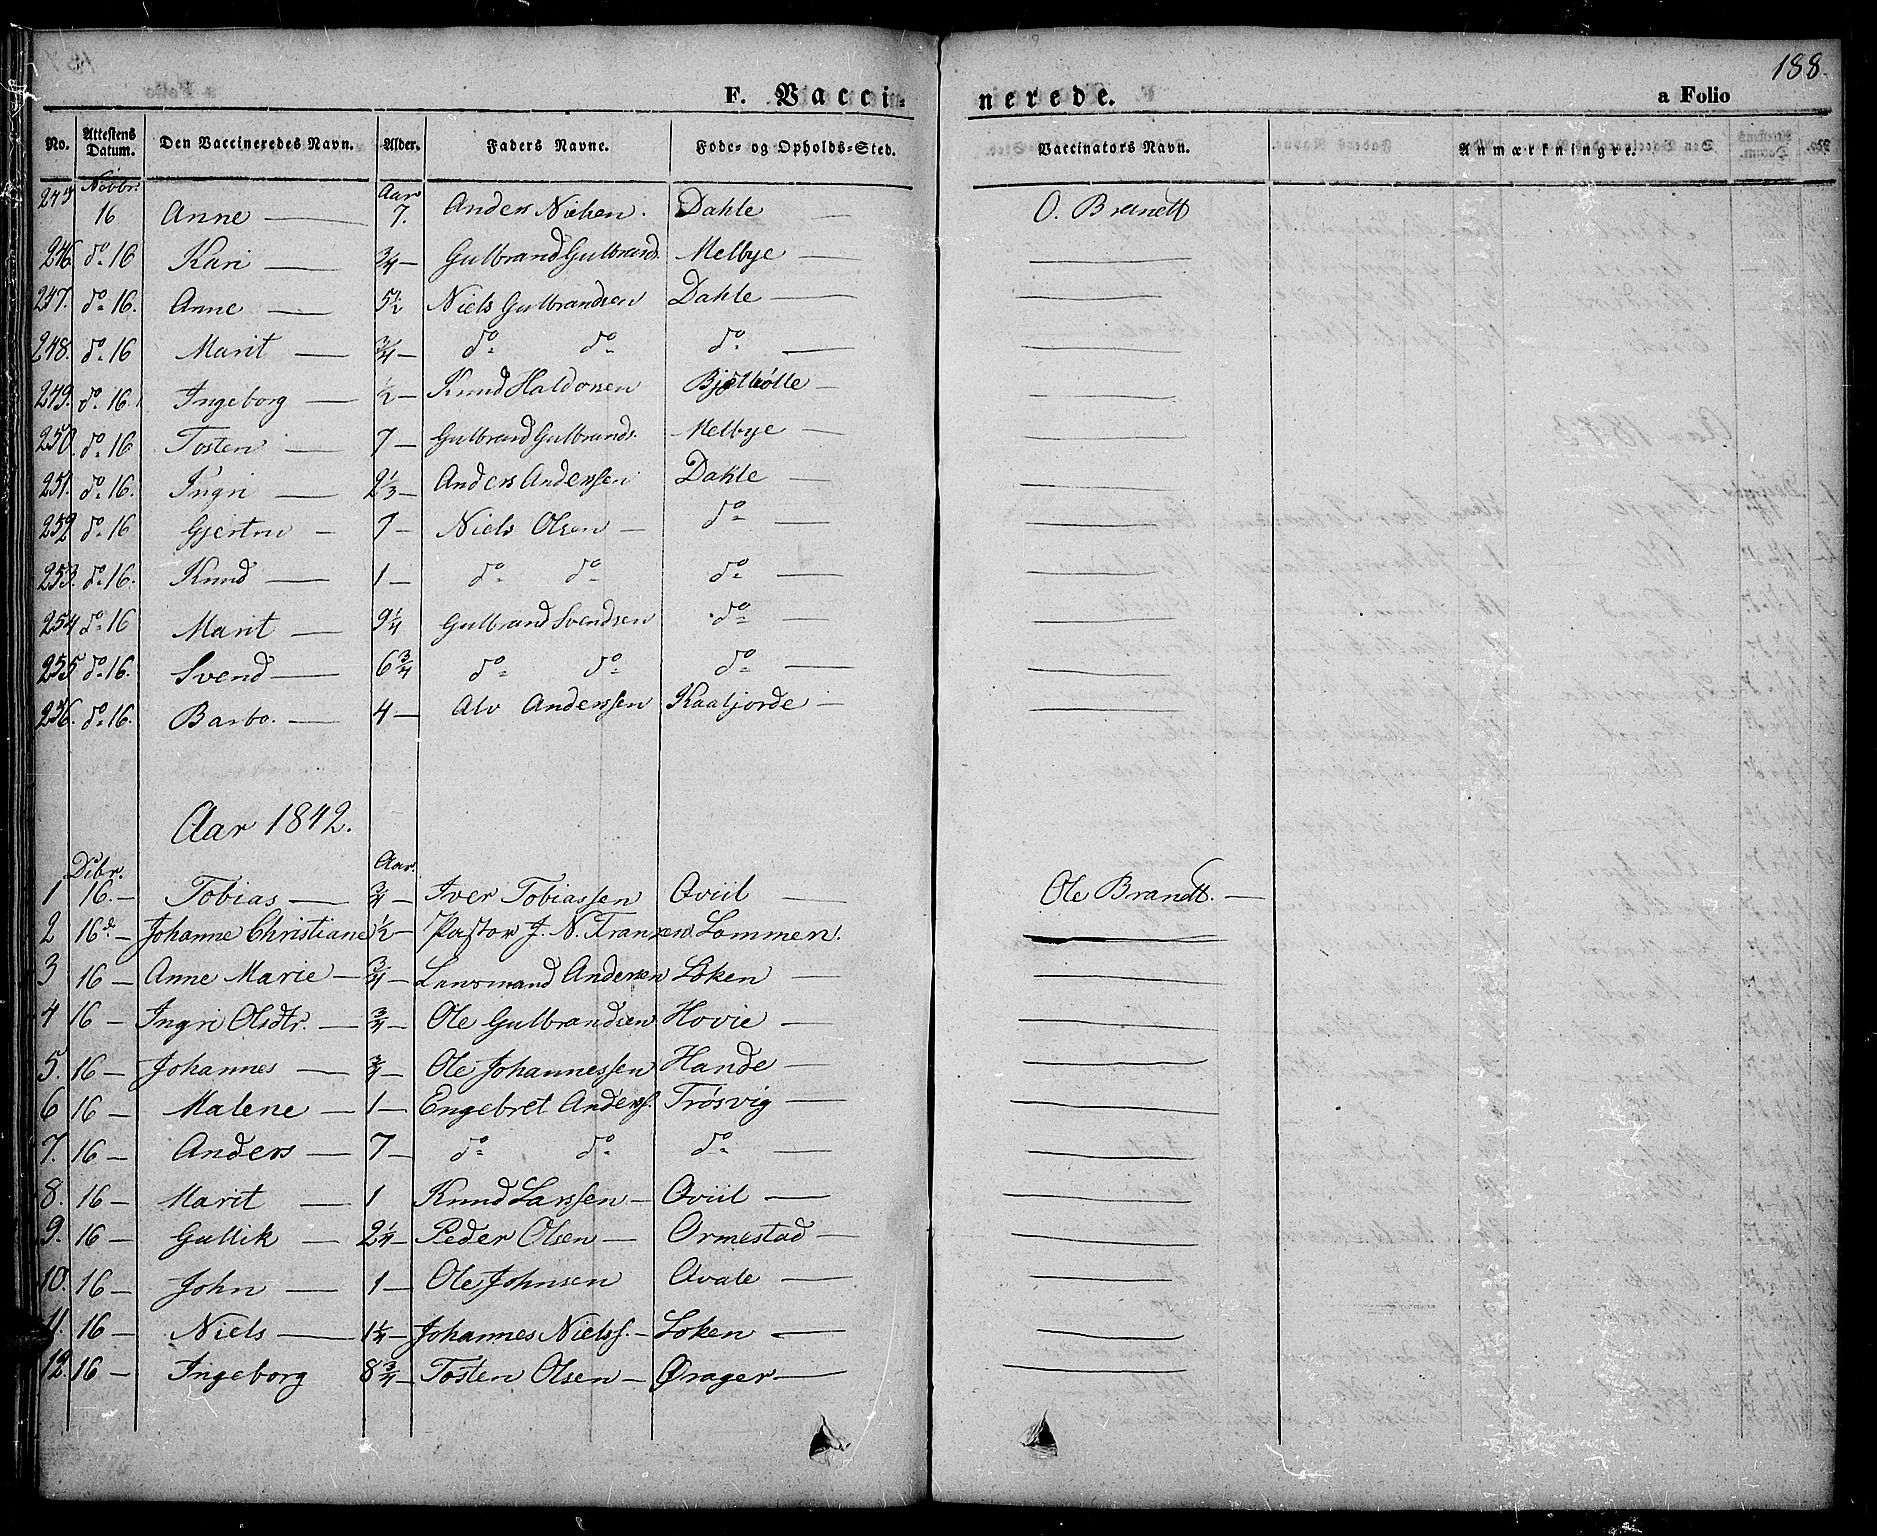 188.
F. Vacci-nerede. a Folio
No. Attestens Datum. Den Vaccineredes Navn. Alder. Faders Navne. Føde- og Opholds-Sted. Vaccinators Navn. Anmærkninger.
Novbr. Aar
245 16 Anne — 7. Anders Nielsen. Dahle — O. Brandt
246 do 16 Kari — 3/4 — Gulbrand Gulbrands. Melbye —
247. do 16. Anne — 5 1/2 Niels Gulbrandsen Dahle —
248. do 16 Marit — 3/4 — do do do —
249. do 16. Ingeborg — 1/2 — Knud Haldorsen —
250. do 16 Tosten — 7 — Gulbrand Gulbrands. Melbye —
251. do 16. Ingri — 2 1/3 — Anders Anderssen Dahle —
252 do 16 Gjertru — 7 — Niels Olsen — do —
253. do 16. Knud — 1 — do do do —
254 do 16 Marit — 9 1/4 Gulbrand Svendsen do —
255 do 16. Svend — 6 3/4 do do do —
256. do 16. Barbo. — 4 — Alv Anderssen —
Aar 1842.
Dcbr. Aar.
1 16. — Tobias — 3/4 — Iver Tobiassen Qviil — Ole Brandt. —
2 16 — Johanne Christiane 1/2 — Pastor J. N. Franzen. Lommen.
3 16 — Anne Marie — 3/4 — Lensmand Andersen Loken —
4 16 — Ingri Olsdtr. — 3/4 — Ole Gulbrandsen Hovie —
5. 16 — Johannes — 3/4 — Ole Johannessen Hande —
6 16 — Malene — 1 — Engebret Anderss. Trøsvig —
7. 16 — Anders — 7 — do do do —
8. 16 — Marit — 1 Knud Larssen — Qviil —
9. 16 — Gullik — 2 1/4 — Peder Olsen — Ormestad —
10. 16 — John — 1 — Ole Johnsen Qvale —
11. 16 — Niels — 1 1/4 — Johannes Nielss. — Loken —
12. 16 — Ingeborg 8 3/4 — Tosten Olsen — Ørager —